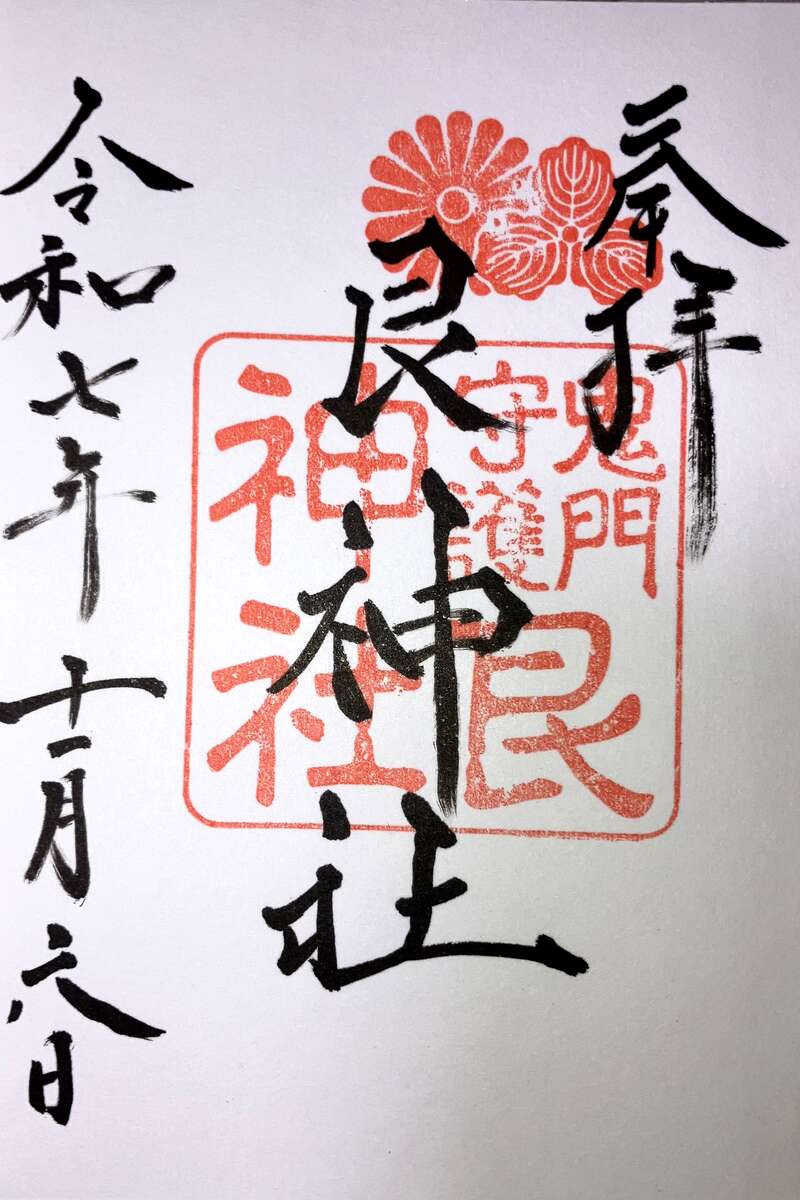 奉拝
艮神社
鬼門
守護
艮
神社
令和七年十一月六日